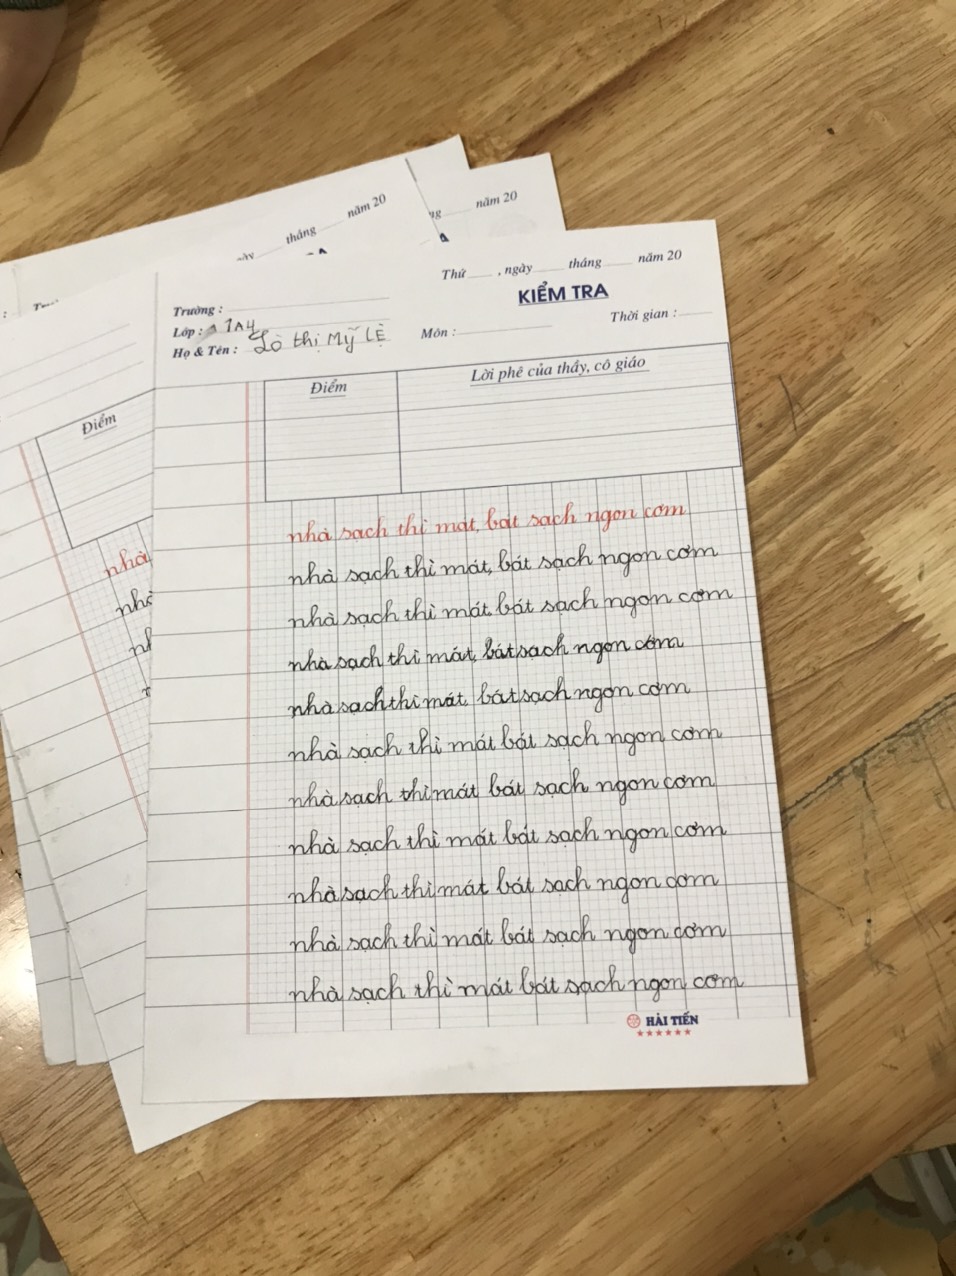 năm 20
tháng
năm 20
Thứ , ngày tháng năm 20
KIỂM TRA
Trường :
Lớp : 1A4
Họ & Tên : Lò thị Mỹ LỆ
Môn :
Thời gian :
Điểm
Lời phê của thầy, cô giáo
Điểm
nhà sạch thì mát, bát sạch ngon cơm
nhà sạch thì mát, bát sạch ngon cơm
nhà sạch thì mát bát sạch ngon cơm
nhà sạch thì mát, bát sạch ngon cơm
nhà sạch thì mát, bát sạch ngon cơm
nhà sạch thì mát bát sạch ngon cơm
nhà sach thì mát bát sạch ngon cơm
nhà sạch thì mát bát sạch ngon cơm
nhà sạch thì mát bát sạch ngon cơm
nhà sạch thì mát bát sạch ngon cơm
nhà sạch thì mát bát sạch ngon cơm
nhà
nhà
HẢI TIẾN